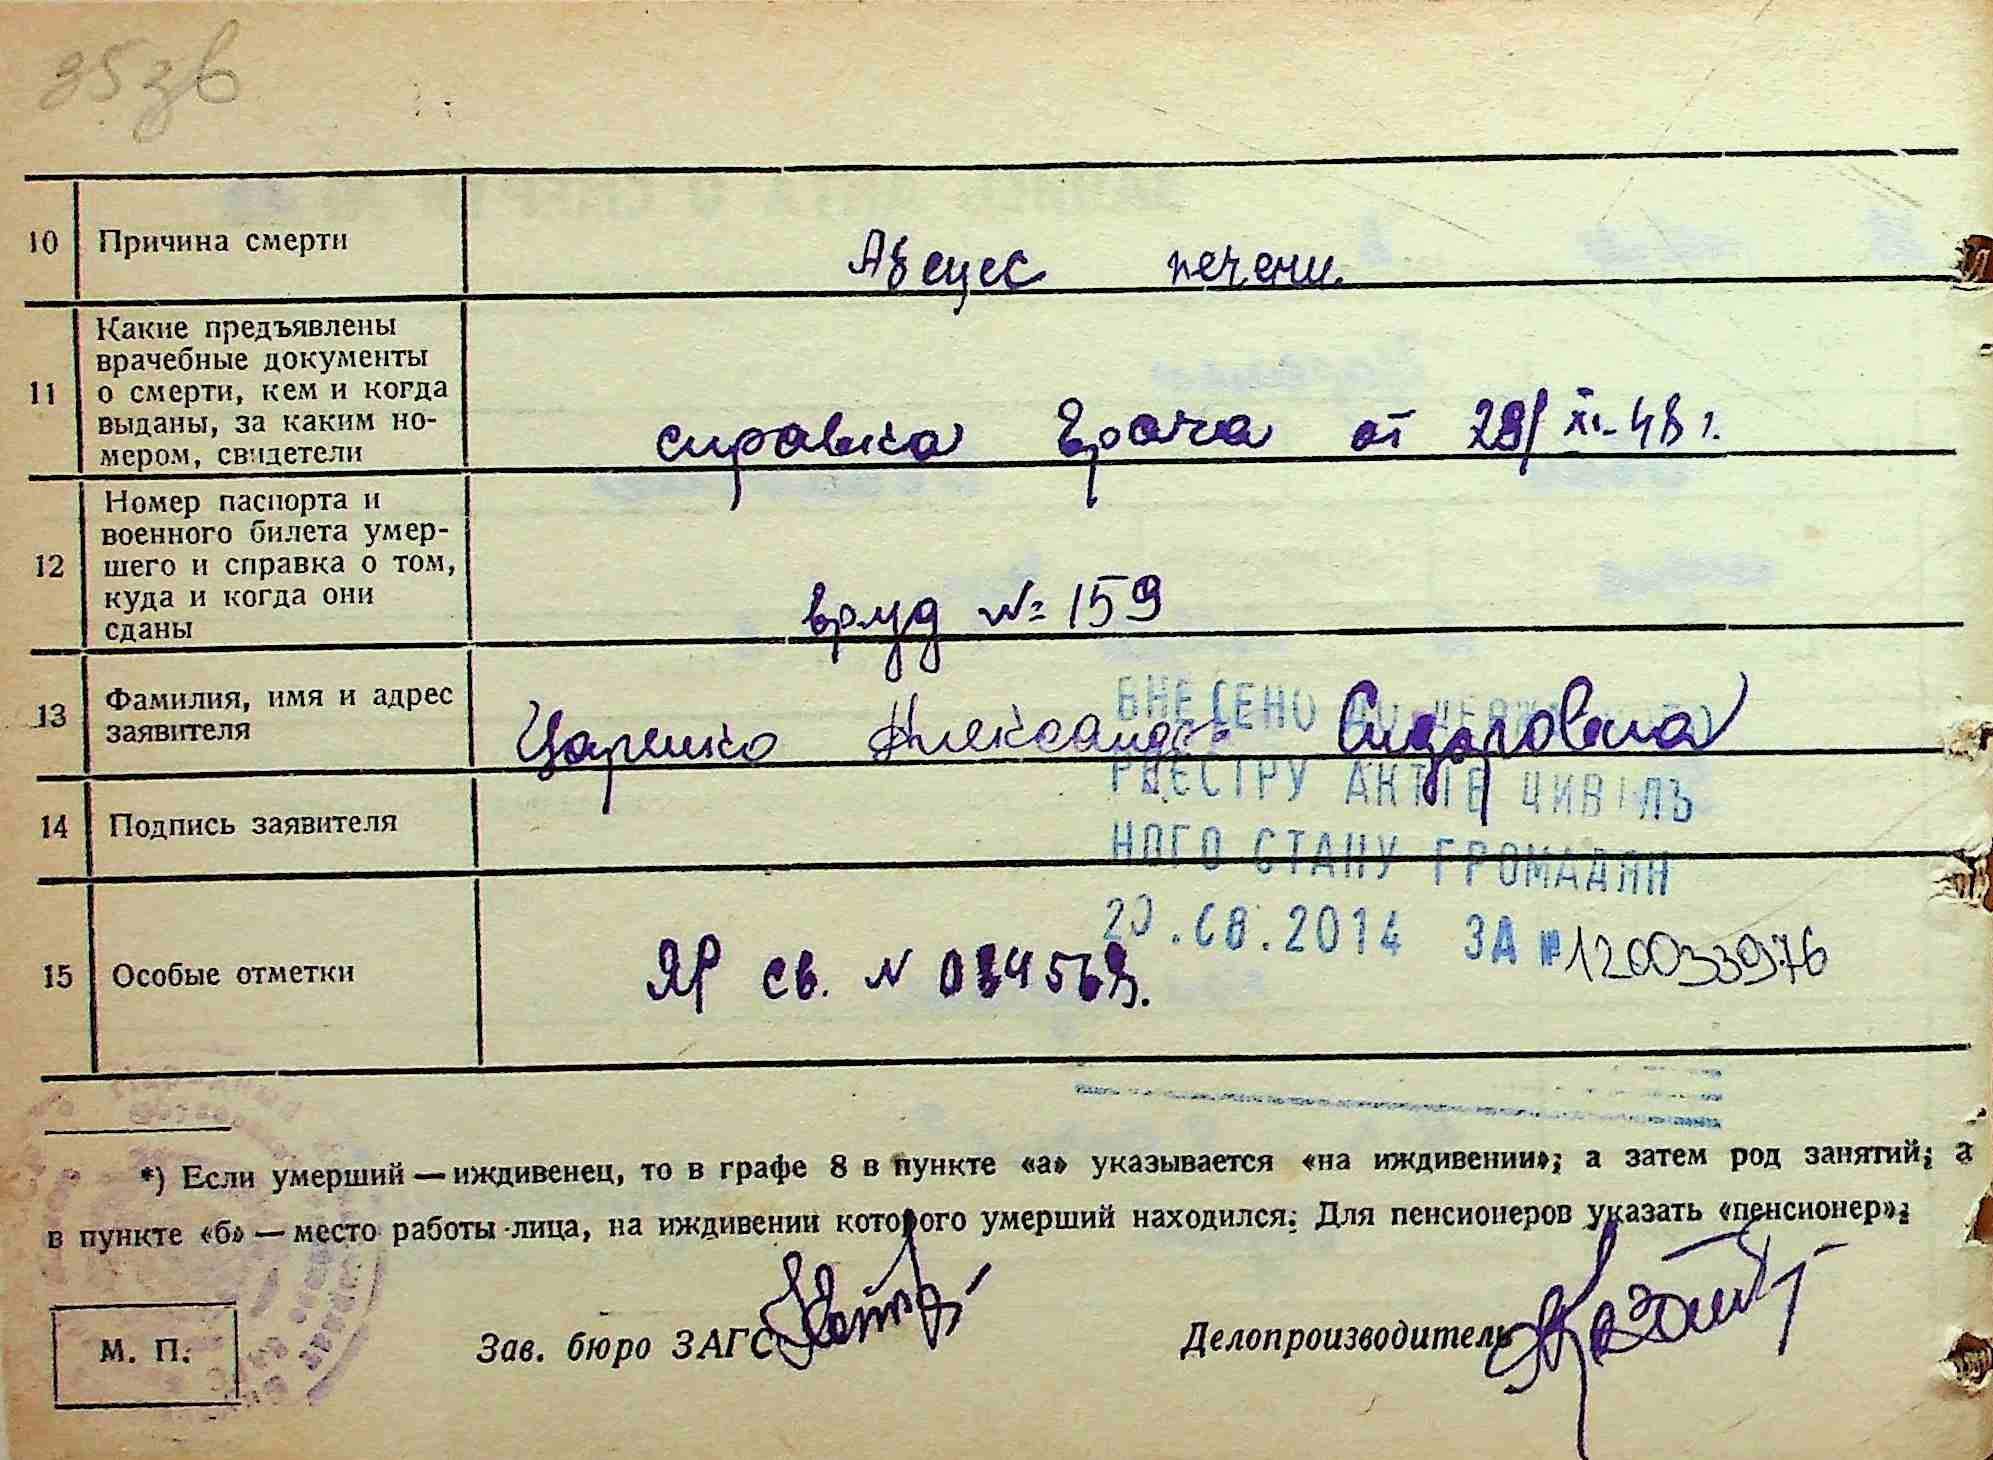 10 Причина смерти Абсцес печени.
11 Какие предъявлены
врачебные документы
о смерти, кем и когда
выданы, за каким но-
мером, свидетели
справка врача от 29/XI-48 г.
12 Номер паспорта и
военного билета умер-
шего и справка о том,
куда и когда они
сданы
№ 159
13 Фамилия, имя и адрес
заявителя
Царенко Александр Сидоровна
ВНЕСЕНО ДО ДЕРЖ
РЕЄСТРУ АКТІВ ЦИВІЛЬ
14 Подпись заявителя
НОГО СТАНУ ГРОМАДЯН
.08.2014 ЗА № 120033976
15 Особые отметки ЯР св. N
*) Если умерший — иждивенец, то в графе 8 в пункте «а» указывается «на иждивении»; а затем род занятий; а
в пункте «б» — место работы лица, на иждивении которого умерший находился. Для пенсионеров указать «пенсионер»;
М. П. Зав. бюро ЗАГС Делопроизводитель